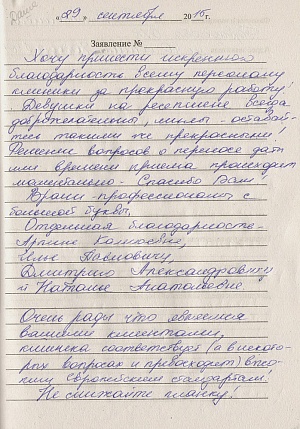 "29" сентября 2015 г.
Заявление №
Хочу принести искреннюю
благодарность всему персоналу
клиники за прекрасную работу!
Девушки на ресепшене всегда
доброжелательны, милы - оставай-
тесь такими же прекрасными!
Решение вопросов о переносе даты
или времени приема происходит
моментально - Спасибо Вам!
Врачи - профессионалы с
большой буквы,
Отдельная благодарность -
Арпине
Илье Павловичу,
Дмитрию Александровичу
и Наталье Анатольевне
Очень рады что являемся
Вашими клиентами,
клиника соответствует (а в некото-
рых вопросах и превосходит) высо-
ким Европейским стандартам!
Не снижайте планку!